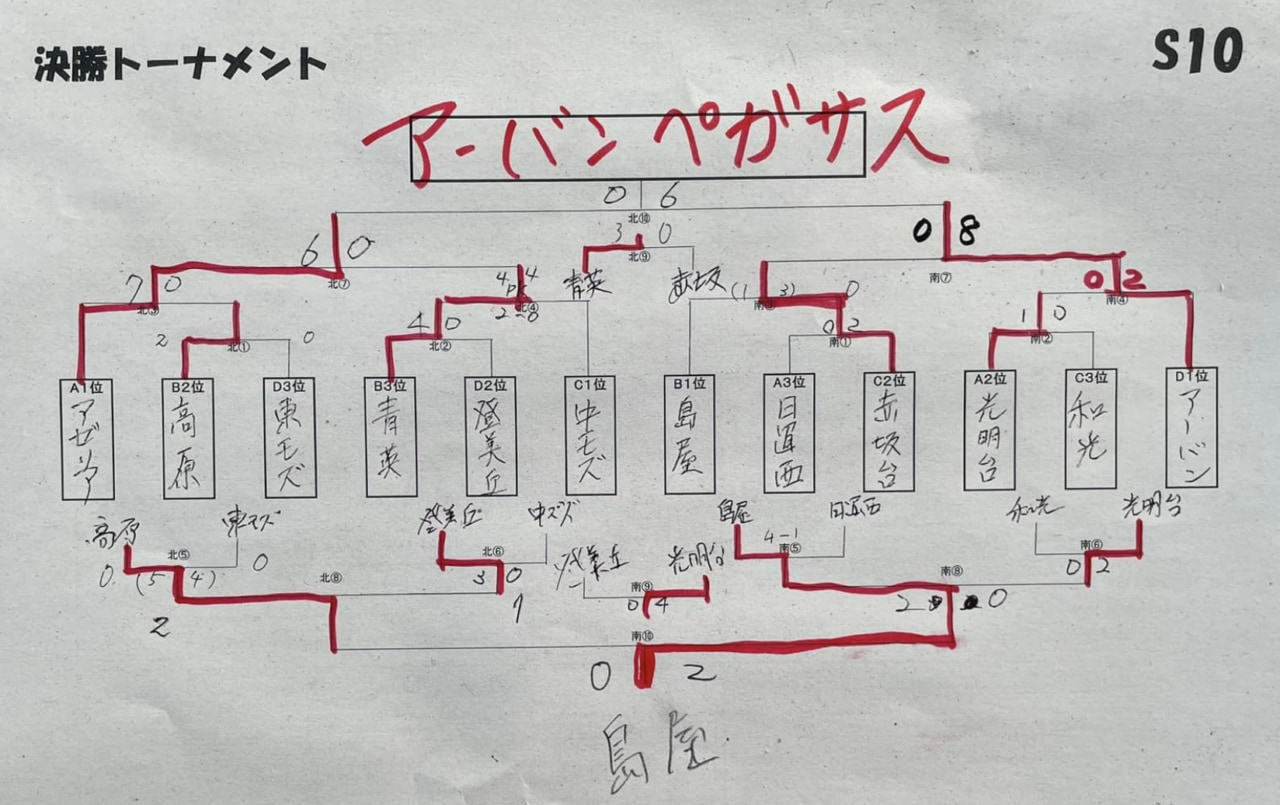 決勝トーナメント
S10
アーバンペガサス
0 6
北⑩
6 0
3 0
北⑨
0 8
7 0
北⑦
4 PK 4
青英
赤坂
(1 3) 0
南⑦
0 2
北③
4 0
2-0
北④
南③
南④
2
北①
0
北②
0 2
南①
1 0
南②
A1位
B2位
D3位
B3位
D2位
C1位
B1位
A3位
C2位
A2位
C3位
D1位
アゼリア
高原
東モズ
青英
登美丘
中モズ
島屋
日置西
赤坂台
光明台
和光
アーバン
高原
東モズ
登美丘
中モズ
島屋
日置西
和光
光明台
北⑤
北⑥
4-1
南⑤
南⑥
0 (5 4) 0
3 0
登美丘
光明台
0 2
北⑧
南⑨
南⑧
2
1
0 4
2
0
南⑩
0 2
島屋